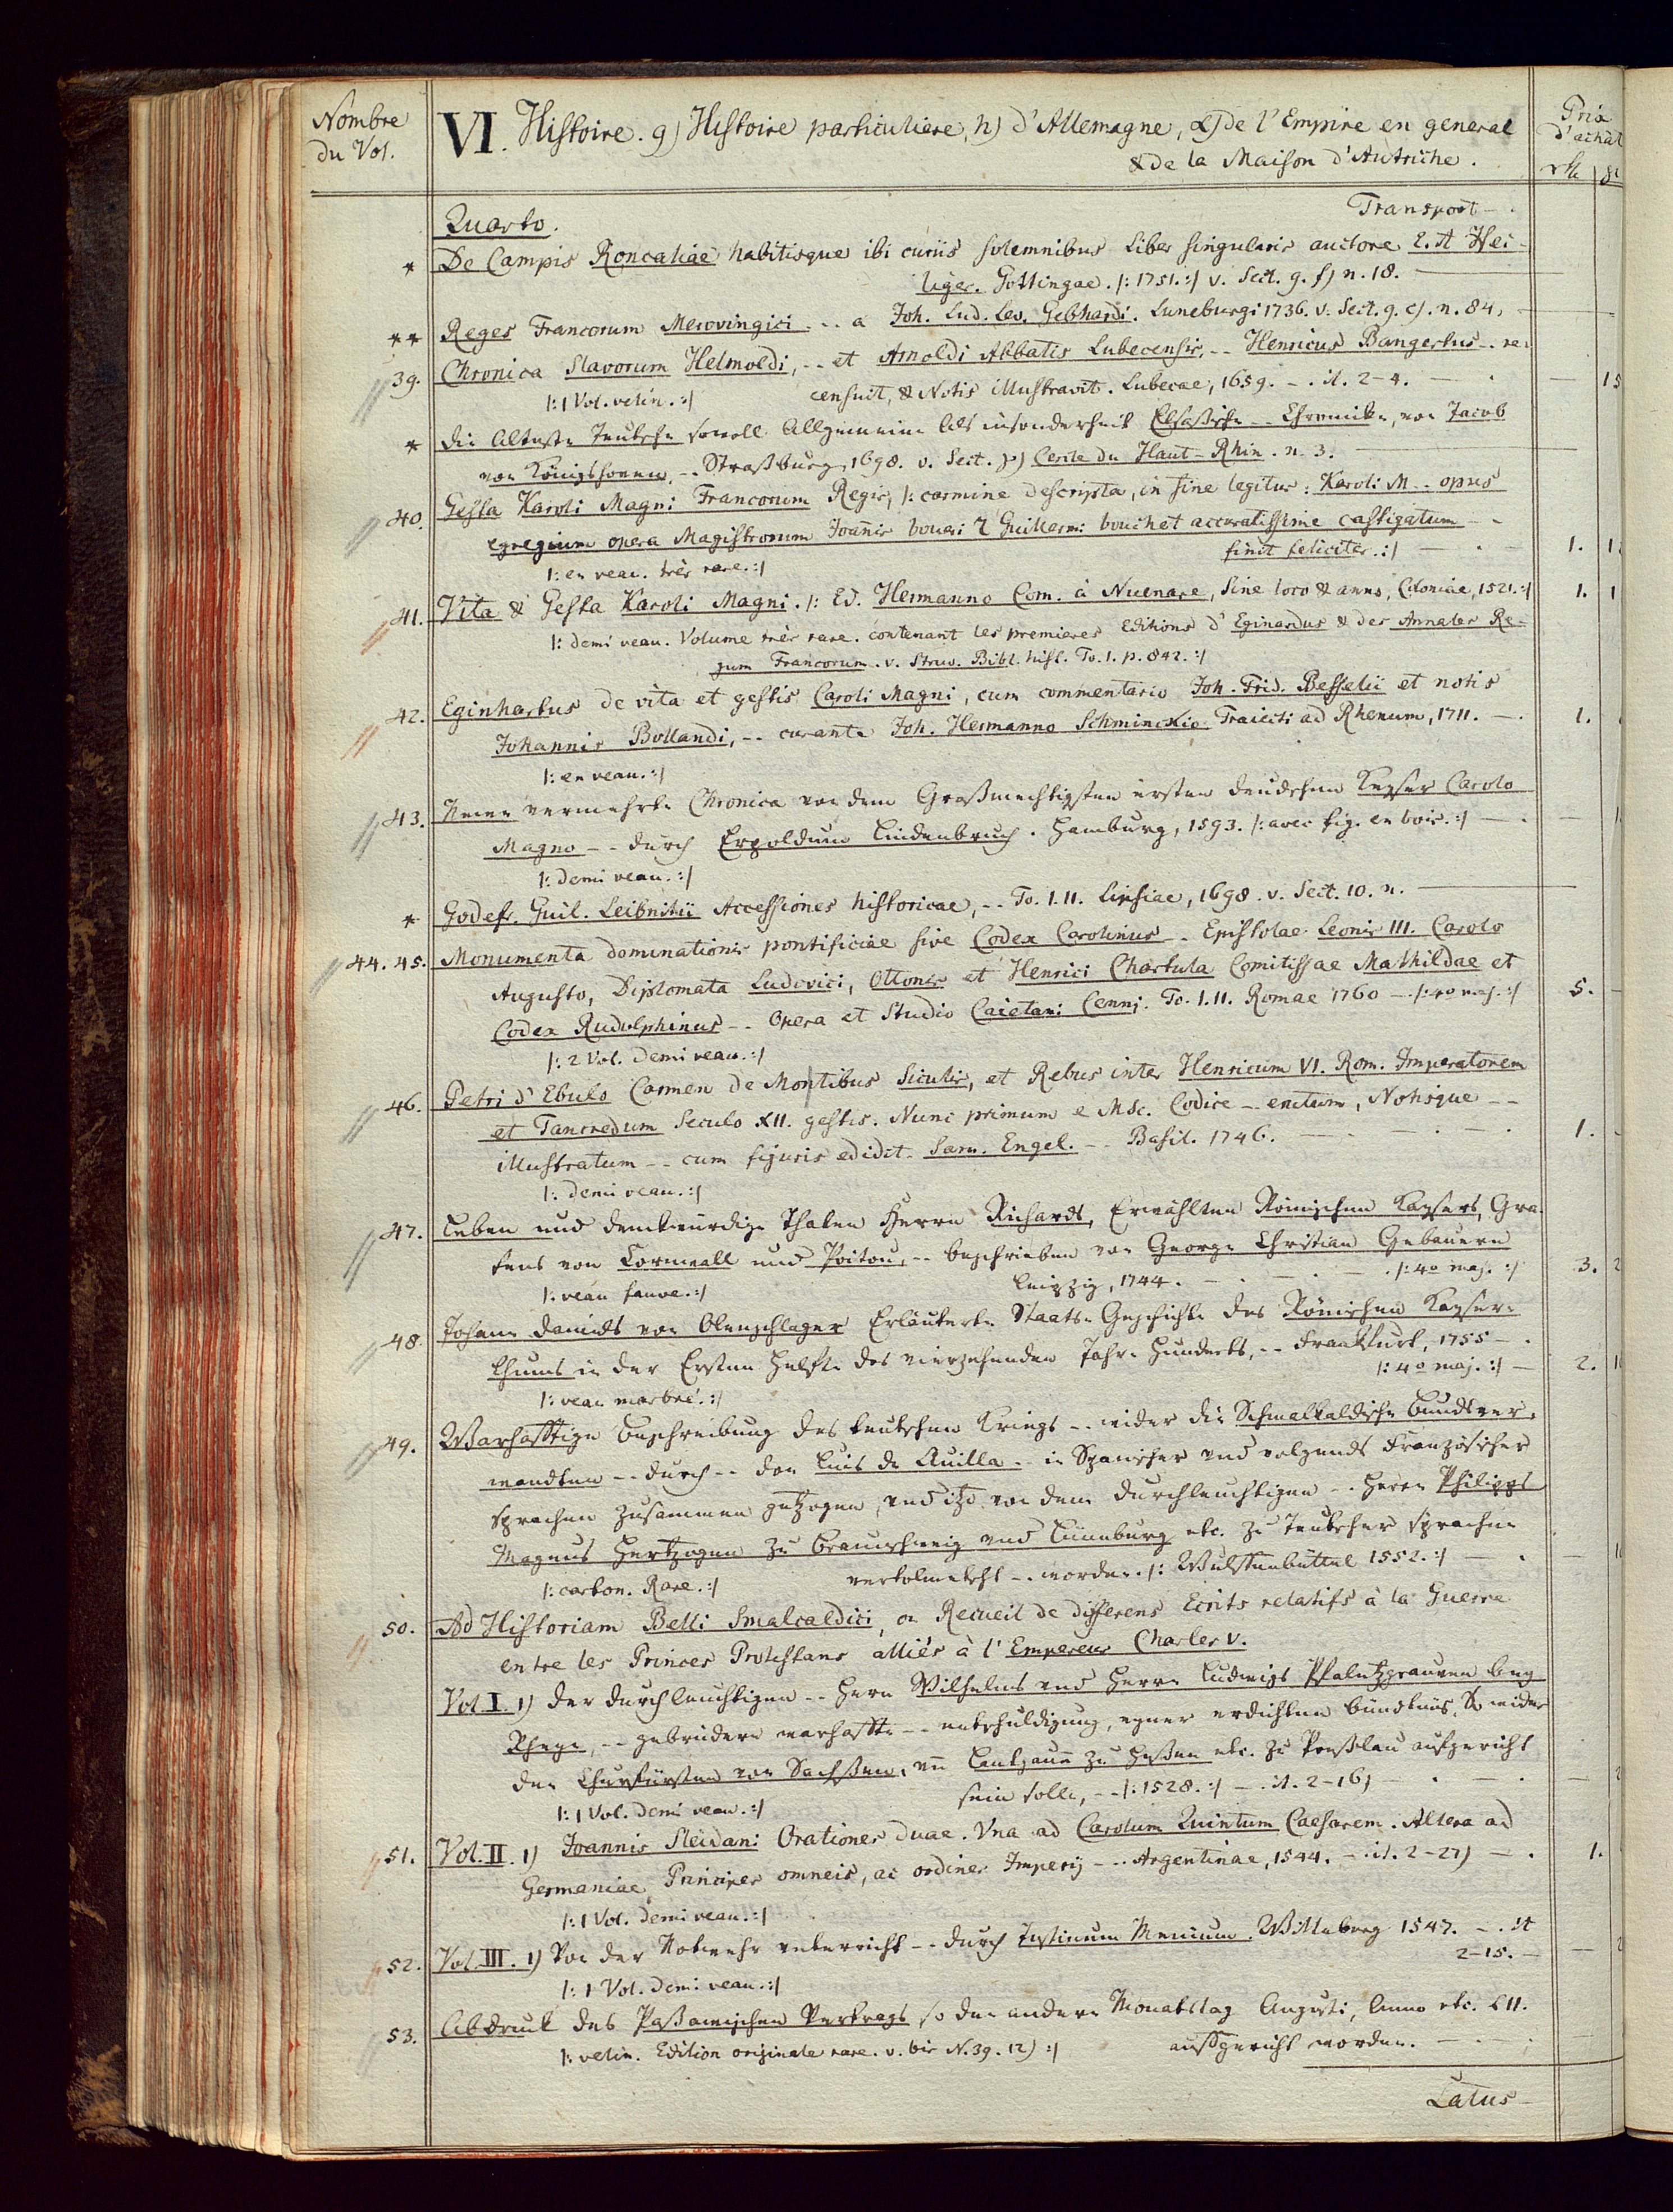 Nombre du Vol.
VI. Histoire. g) Histoire particuliere, h) d'Allemagne, α) de l'Empire en general
& de la Maison d'Autriche.
Prix d'achât
Quarto.
Transport - .
* De Campis Roncaliae habitisque ibi curiis solemnibus Liber singularis auctore E. A Hei-
liger. Gottingae. /: 1751. :/ v. Sect. g. f) n. 18.
** Reges Francorum Merovingici - - a Joh. Lud. Lev. Gebhardi. Luneburgi 1736. v. Sect. g. c). n. 84.
39. Chronica Slavorum Helmoldi, - - et Arnoldi Abbatis Lubecensis, - - Henricus Bangertus - - re-
censuit, & Notis illustravit. Lubecae, 1659. - . it. 2-4. — . — 15
/: 1 Vol. velin. :/
* Die Alteste Teutsche sowoll Allgemeine als insonderheit Elsaßische - - Chronicke, von Jacob
von Königshoven, - - Straßburg 1698. v. Sect. p) Cercle du Haut-Rhin. n. 3.
40. Gesta Karoli Magni Francorum Regis, /: carmine descripta, in fine legitur: Karoli M. - opus
egregium opera Magistrorum Joannis bouri & Guillermi bouchet accuratissime castigatum - -
finit feliciter. :/ — . — 1.
/: en veau. très rare. :/
41. Vita & Gesta Karoli Magni. /: Ed. Hermanno Com. à Nuenare, sine loco & anno, Coloniae, 1521. :/ 1.
/: demi veau. Volume très rare. contenant les premieres Editions d'Eginardus & des Annales Re-
gum Francorum. v. Struv. Bibl. hist. To. 1. p. 842. :/
42. Eginhartus de vita et gestis Caroli Magni, cum commentario Joh. Frid. Besselii et notis
Johannis Bollandi, - - curante Joh. Hermanno Schminckio. Traiecti ad Rhenum, 1711. — . 1.
/: en veau. :/
43. Newe vermehrte Chronica von dem Großmechtigsten ersten deudschen Keyser Carolo
Magno - - durch Erpoldum Lindenbruch. Hamburg, 1593. /: avec fig. en bois. :/ — . —
/: demi veau. :/
* Godefr. Guil. Leibnitii Accessiones historicae, - - To. I. II. Lipsiae, 1698. v. Sect. 10. n.
44. 45. Monumenta dominationis pontificiae sive Codex Carolinus - - Epistolae Leonis III. Carolo
Augusto, Diplomata Ludovici, Ottonis et Henrici Chartula Comitissae Mathildae et
Codex Rudolphinus - - Opera et Studio Caietani Cenni. To. I. II. Romae 1760 - . /: 4o maj. :/ 5.
/: 2 Vol. demi veau. :/
46. Petri d'Ebulo Carmen de Montibus Siculis, et Rebus inter Henricum VI. Rom. Imperatorem
et Tancredum Seculo XII. gestis. Nunc primum e Msc. Codice - - erutum, Notisque - -
illustratum - - cum figuris edidit. Sam. Engel. - - Basil. 1746. — . — . — . 1.
/: demi veau. :/
47. Leben und denckwürdige Thaten Herrn Richards, Erwählten Römischen Kaysers, Gra-
fens von Cornwall und Poitou, - - beschrieben von George Christian Gebauern
Leipzig, 1744. — . — . — . /: 4o maj. :/ 3. 2
/: veau fauve. :/
48. Johann Daniels von Olenschlager Erläuterte Staats-Geschichte des Römischen Kayser-
thums in der Ersten Helfte des vierzehenden Jahr-Hunderts, - - Frankfurt, 1755 - .
/: 4o maj. :/ — 2.
/: veau marbré. :/
49. Warhafftige Beschreibung des teutschen Kriegs - - wider die Schmalkaldische Bundsver-
wandten - - durch - - Don Luis de Auilla - - in Spanischer und volgends Französischer
sprachen zusammen getzogen, und itzo von dem Durchleuchtigen - - Herrn Philipps
Magnus Hertzogen zu Braunschweig und Lünneburg etc. zu Teutscher sprachen
vertolmetscht - - worden. /: Wulffenbüttel 1552. :/ — . —
/: carton. Rare. :/
50. Ad Historiam Belli Smalcaldici, ou Recueil de differens Ecrits relatifs à la Guerre
entre les Princes Protestans alliés à l'Empereur Charles V.
Vol. I. 1) Der durchleuchtigen - - Hern Wilhelms und Herrn Ludwigs Pfaltzgrauen bey
Rheyn, - - gebrüdern warhaffte - - entschuldigung, eyner erdichten bündtnüs, So wider
den Churfürsten von Sachssen, un Lantgraue zu Hessen etc. zu Presslau aufgericht
sein solle, - - /: 1528. :/ — . it. 2-16) — . — . — 2
/: 1 Vol. demi veau. :/
51. Vol. II. 1) Joannis Sleidani Orationes duae. Vna ad Carolum Quintum Caesarem. Altera ad
Germaniae Principes omneis, ac ordines Imperij - - . Argentinae, 1544. — . it. 2-27) — . 1.
/: 1 Vol. demi veau. :/
52. Vol. III. 1) Von der Notwehr unterricht - - durch Justinum Menium. Witteberg 1547. - . it
2-15. — — 2
/: 1 Vol. demi veau. :/
53. Abdruck des Paßawischen Vertrags so den andern Monatstag Augusti, Anno etc. LII.
aufsgericht worden. — . —
/: velin. Edition originale rare. v. bis N. 39. 12) :/
Latus -